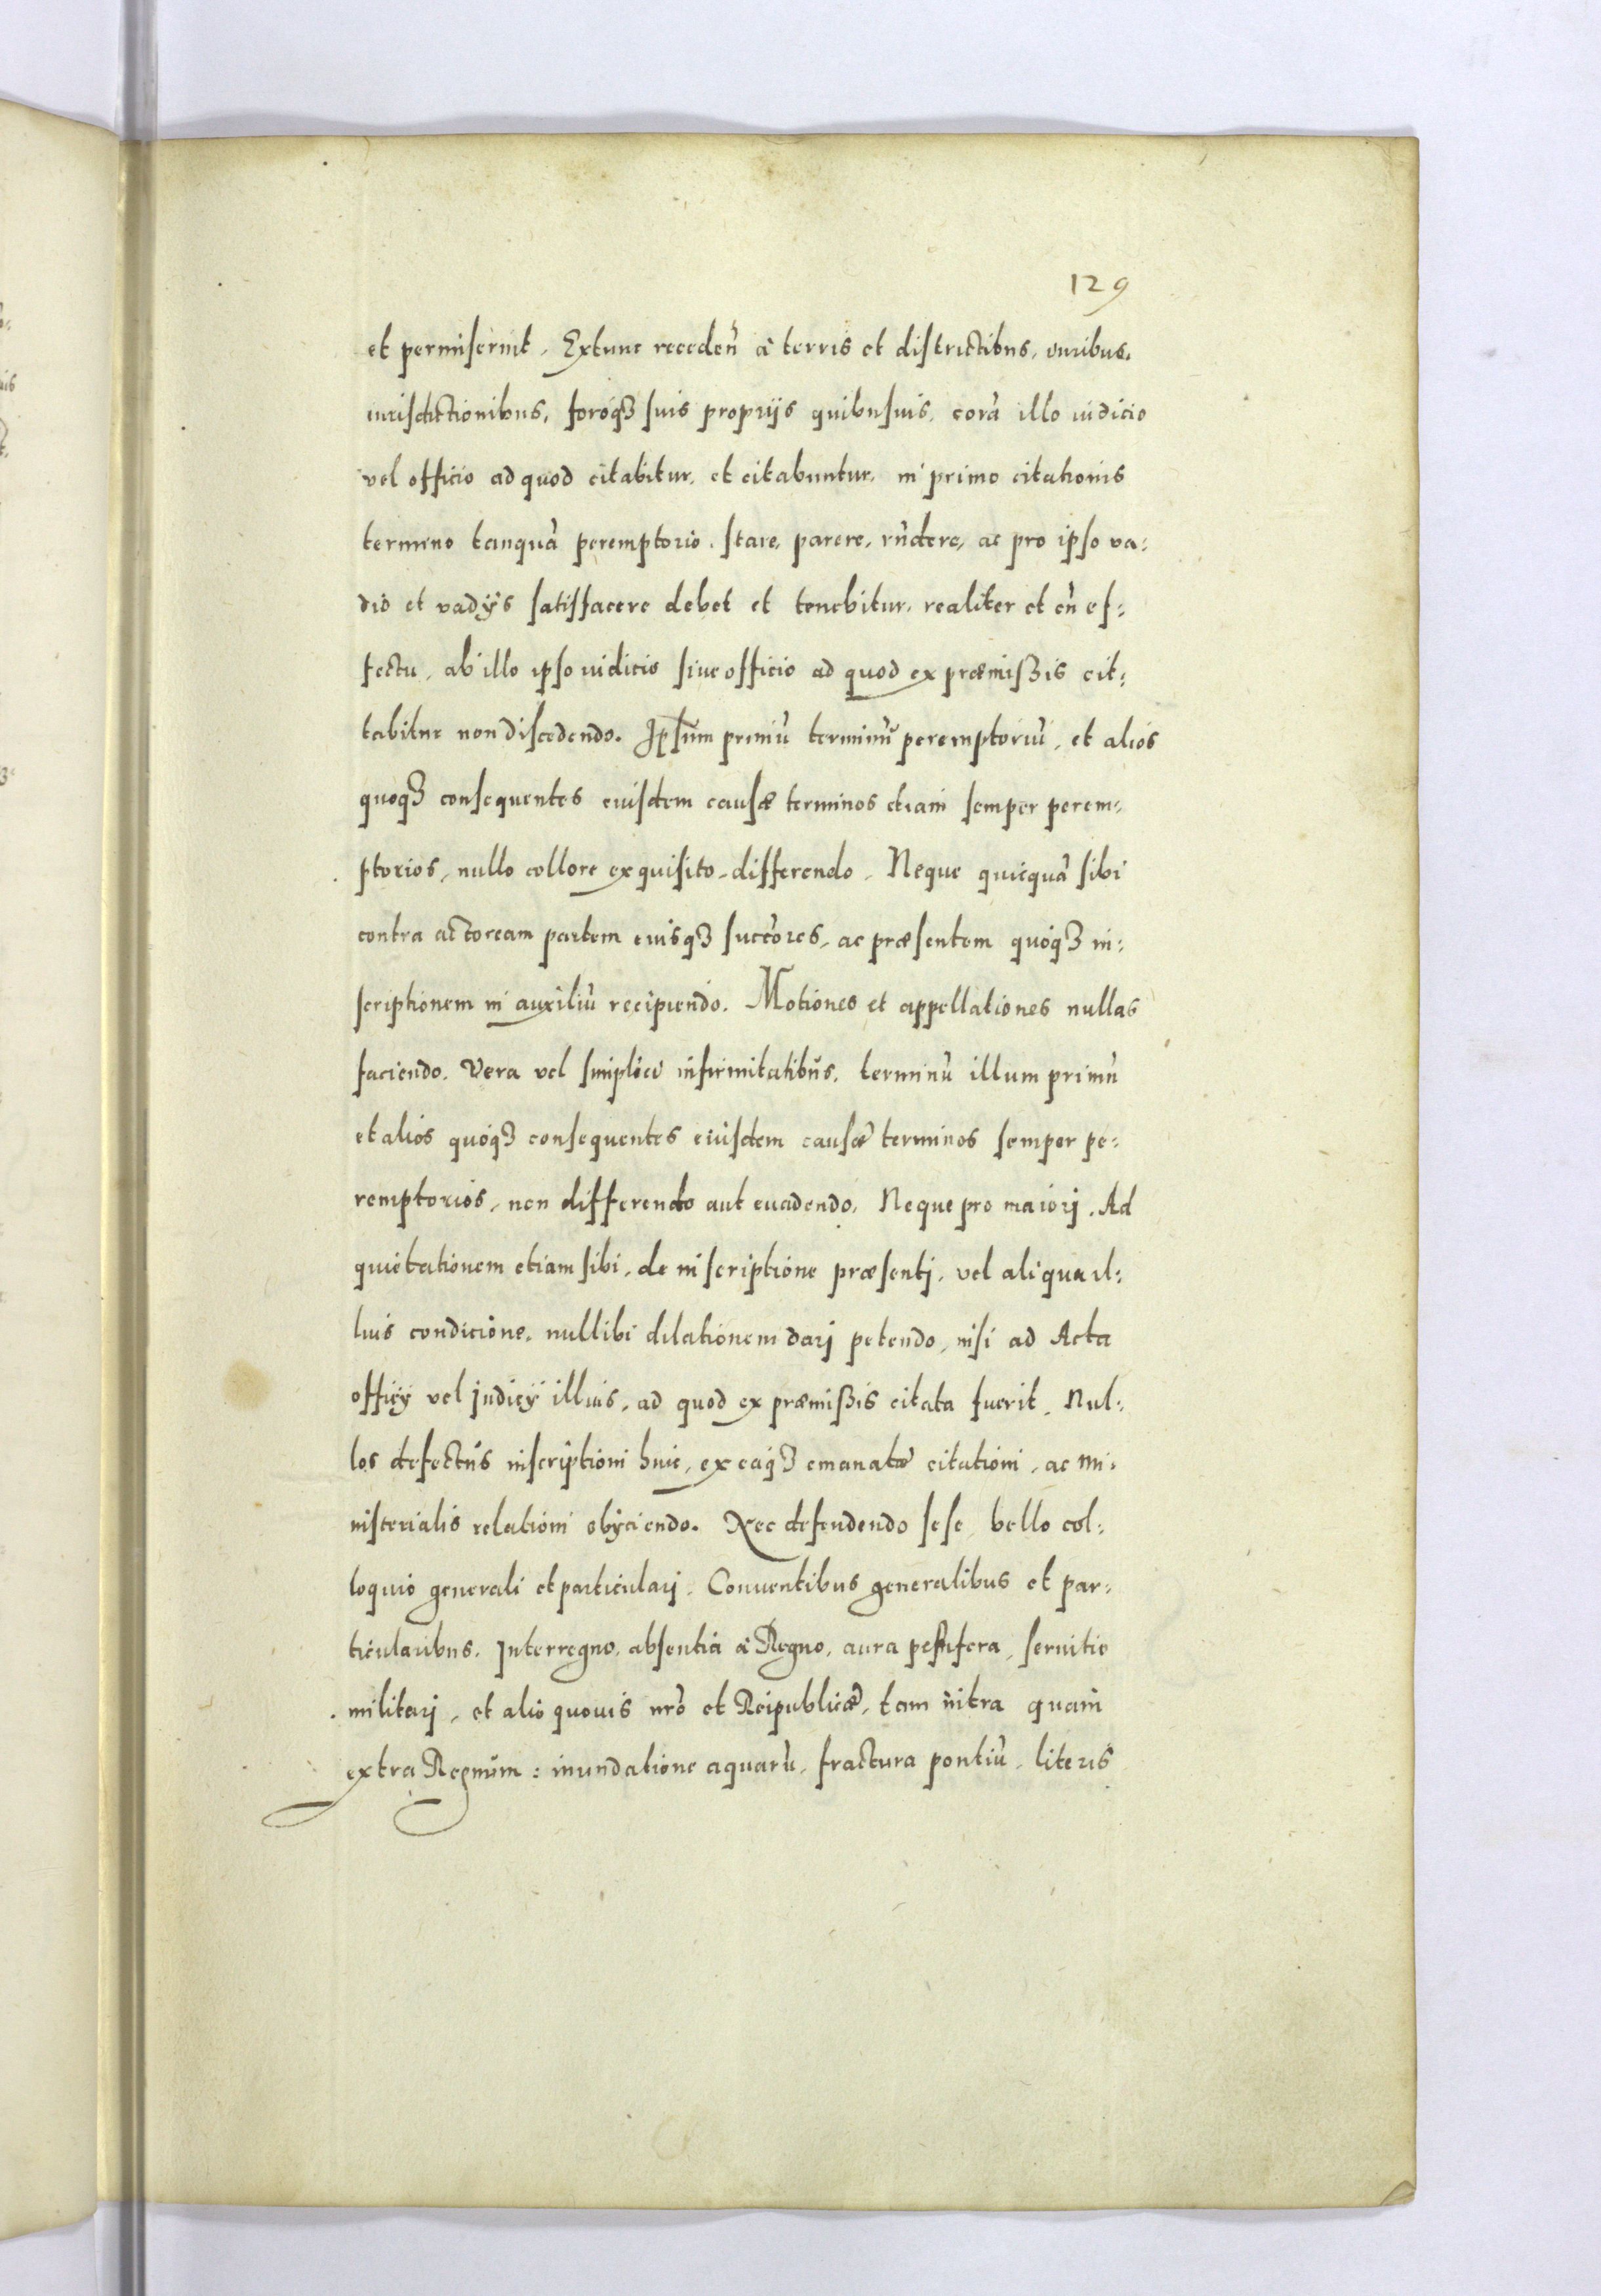 129
et permiserint, Extunc recedeñ à terris et districtibus, iuribus,
iurisdictionibus, foroq3 suis proprijs quibusuis, corã illo iudicio
vel officio ad quod citabitur, et citabuntur, in primo citationis
termino tanquã peremptorio, stare, parere, rñdere, ac pro ipso va:
dio et vadÿs satisfacere debet et tenebitur, realiter et cũ ef:
fectu, ab illo ipso iudicio siue officio ad quod ex præmißis cit:
tabitur non discedendo. Ipsum primũ terminũ peremptoriũ, et alios
quoq3 consequentes eiusdem causæ terminos etiam semper perem:
ptorios, nullo collore exquisito differendo, Neque quicquã sibi
contra actoream partem eiusq3 succr̃ores, ac præsentem quoq3 in:
scriptionem in auxiliũ recipiendo. Motiones et appellationes nullas
faciendo. Vera vel simplici infirmitatibus, terminũ illum primũ
et alios quoq3 consequentes eiusdem causæ terminos semper pe:
remptorios, non differendo aut euadendo, Neque pro maiorj, Ad
quietationem etiam sibi, de inscriptione præsentj, vel aliqua il:
lius condicione, nullibi dilationem darj petendo, nisi ad Acta
officÿ vel Judicÿ illius, ad quod ex præmißis citata fuerit, Nul:
los defectus inscriptioni huic, ex eaq3 emanatæ citationi, ac mi:
nisterialis relationi obÿciendo. Nec defendendo sese bello col:
loquio generali et particularj, Conuentibus generalibus et par:
ticularibus, Interregno, absentia à Regno, aura pestifera, seruitio
militarj, et alio quouis nr̃o et Reipublicæ, tam intra quam
extra Regnum: inundatione aquarũ, fractura pontiũ, literis